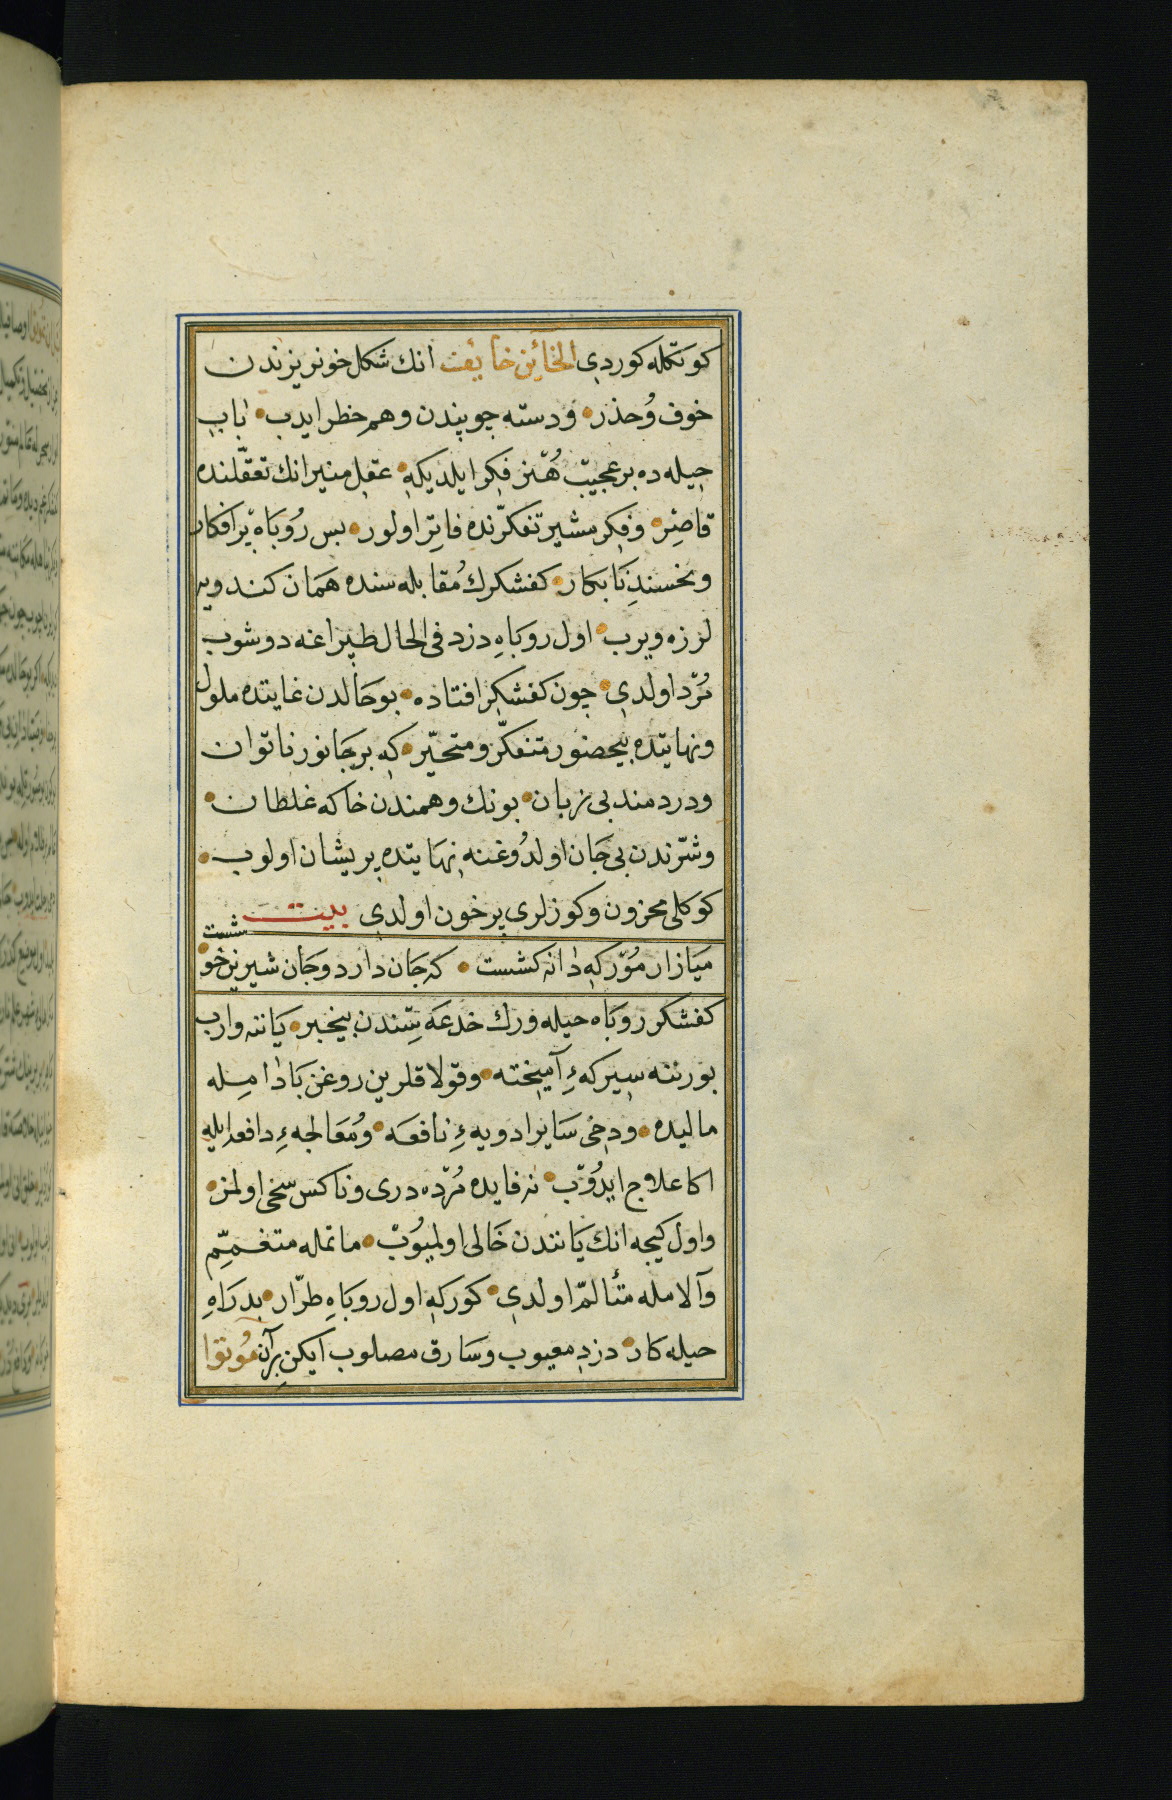 كوتكله كوردى الخائن خائف انك شكل خونريزندن
خوف و حذر و دسته چوبندن وهم خطر ايدب باب
حيله ده بر عجيب هنر فكر ايلديكه عقل منير انك تعقلنده
قاصر و فكر مشير تفكرنده فاتر اولور بس روباه پر افكار
و نخسند نابكار كفشكرك مقابله سنده همان كندويه
لرزه ويرب اول روباه دزد فى الحال طپراغه دوشوب
مرد اولدى چون كفشكر افتاده بو حالدن غايتده ملول
و نهايتده بيحضور متفكر و متحير كه بر جانور ناتوان
و دردمند بى زبان بونك وهمندن خاكه غلطان
و شرندن بى جان اولدوغنه نهايتده پريشان اولوب
كوكلى محزون و كوزلرى پرخون اولدى بيت
ميازار مور كه دانه كشست كه جان دارد و جان شيرين خوشست
كفشكر روباه حيله ورك خدعه سندن بيخبر ياننه وارب
بورننه سيركۀ آميخته و قولاقلرين روغن بادامله
ماليده و دخى ساير ادويۀ نافعه و معالجۀ دافعه ايله
اكا علاج ايدوب نه فايده مرده درى و ناكس سخى اولمز
و اول كيجه انك ياننندن خالى اولميوب ماتمله متغمم
و آلامله متألم اولدى كوركه اول روباه طرار بدراه
حيله كار دزد معيوب و سارق مصلوب ايكن بر آن موتوا